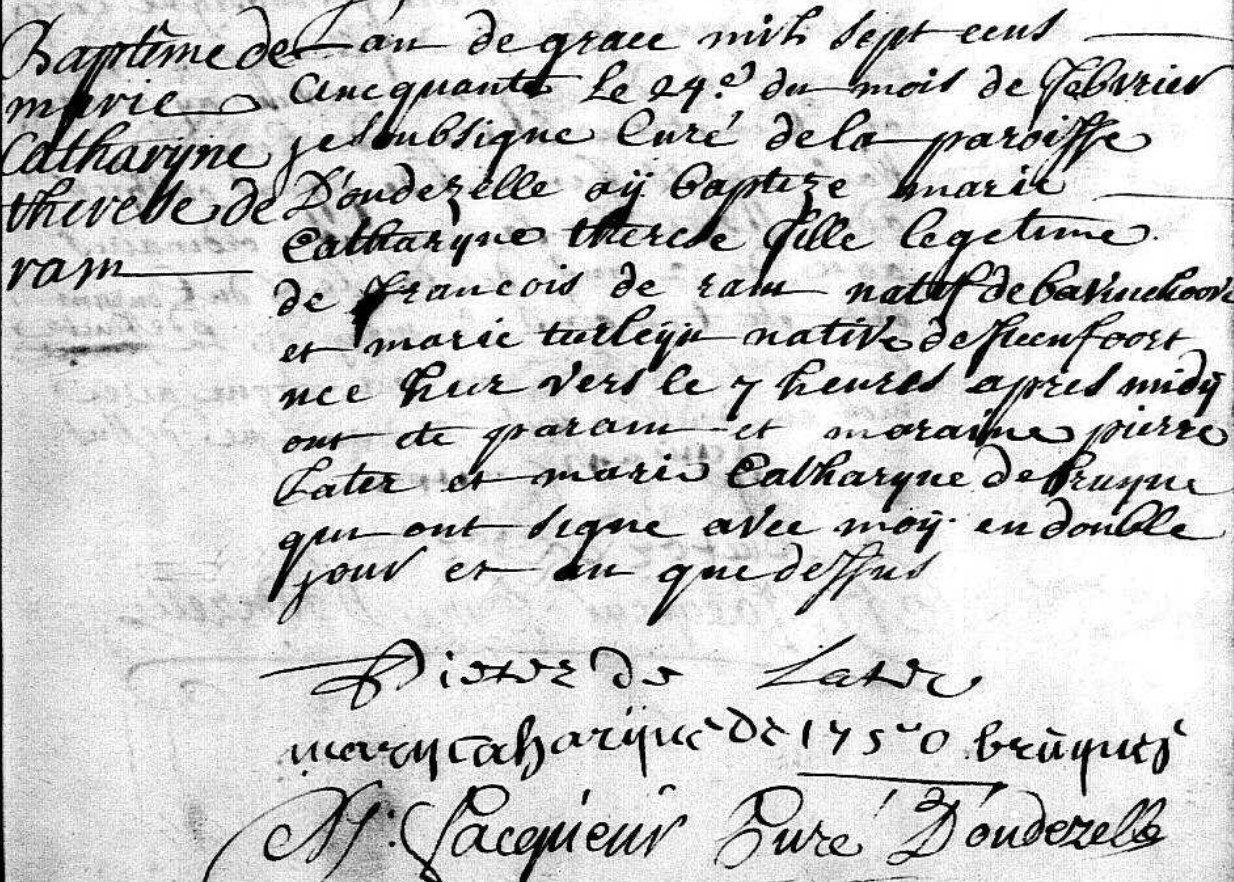 Baptême de
marie
Catharyne
therese de
ram
L'an de grace mil sept cens
Cincquante Le 24.e du mois de febvrier
je soubsigne Curé de la paroisse
D'oudezelle aÿ baptize marie
Catharyne therese fille legetime
de francois de ram natif de bavinchoove
et marie turleyn native de steenfoort
nee hier vers le 7 heures apres midÿ
ont ete parain et maraine pierre
Later et marie Catharyne de bruyne
qui ont signe avec moÿ en double
jour et an que dessus
Pieter de Later
mary caharÿne de 1750 brüyne
Curé D'oudezelle